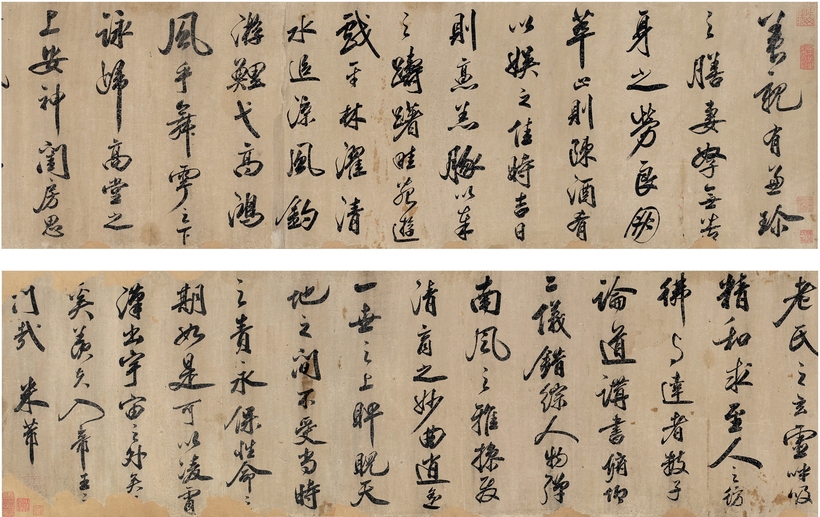 養親有兼珍
之膳妻孥無苦
身之勞良朋
萃止則陳酒肴
以娛之佳時吉日
則烹羔豚以奉
之躊躇畦苑遊
戲平林濯清
水追涼風釣
游鯉弋高鴻
風乎舞雩之下
詠歸高堂之
上安神閨房思
老氏之玄虛呼吸
精和求至人之彷
彿与達者數子
論道講書俯仰
二儀錯綜人物彈
南風之雅操發
清商之妙曲逍遙
一世之上睥睨天
地之間不受當時
之責永保性命之
期如是可以凌霄
漢出宇宙之外矣
奚羨夫入帝王之
門哉 米芾